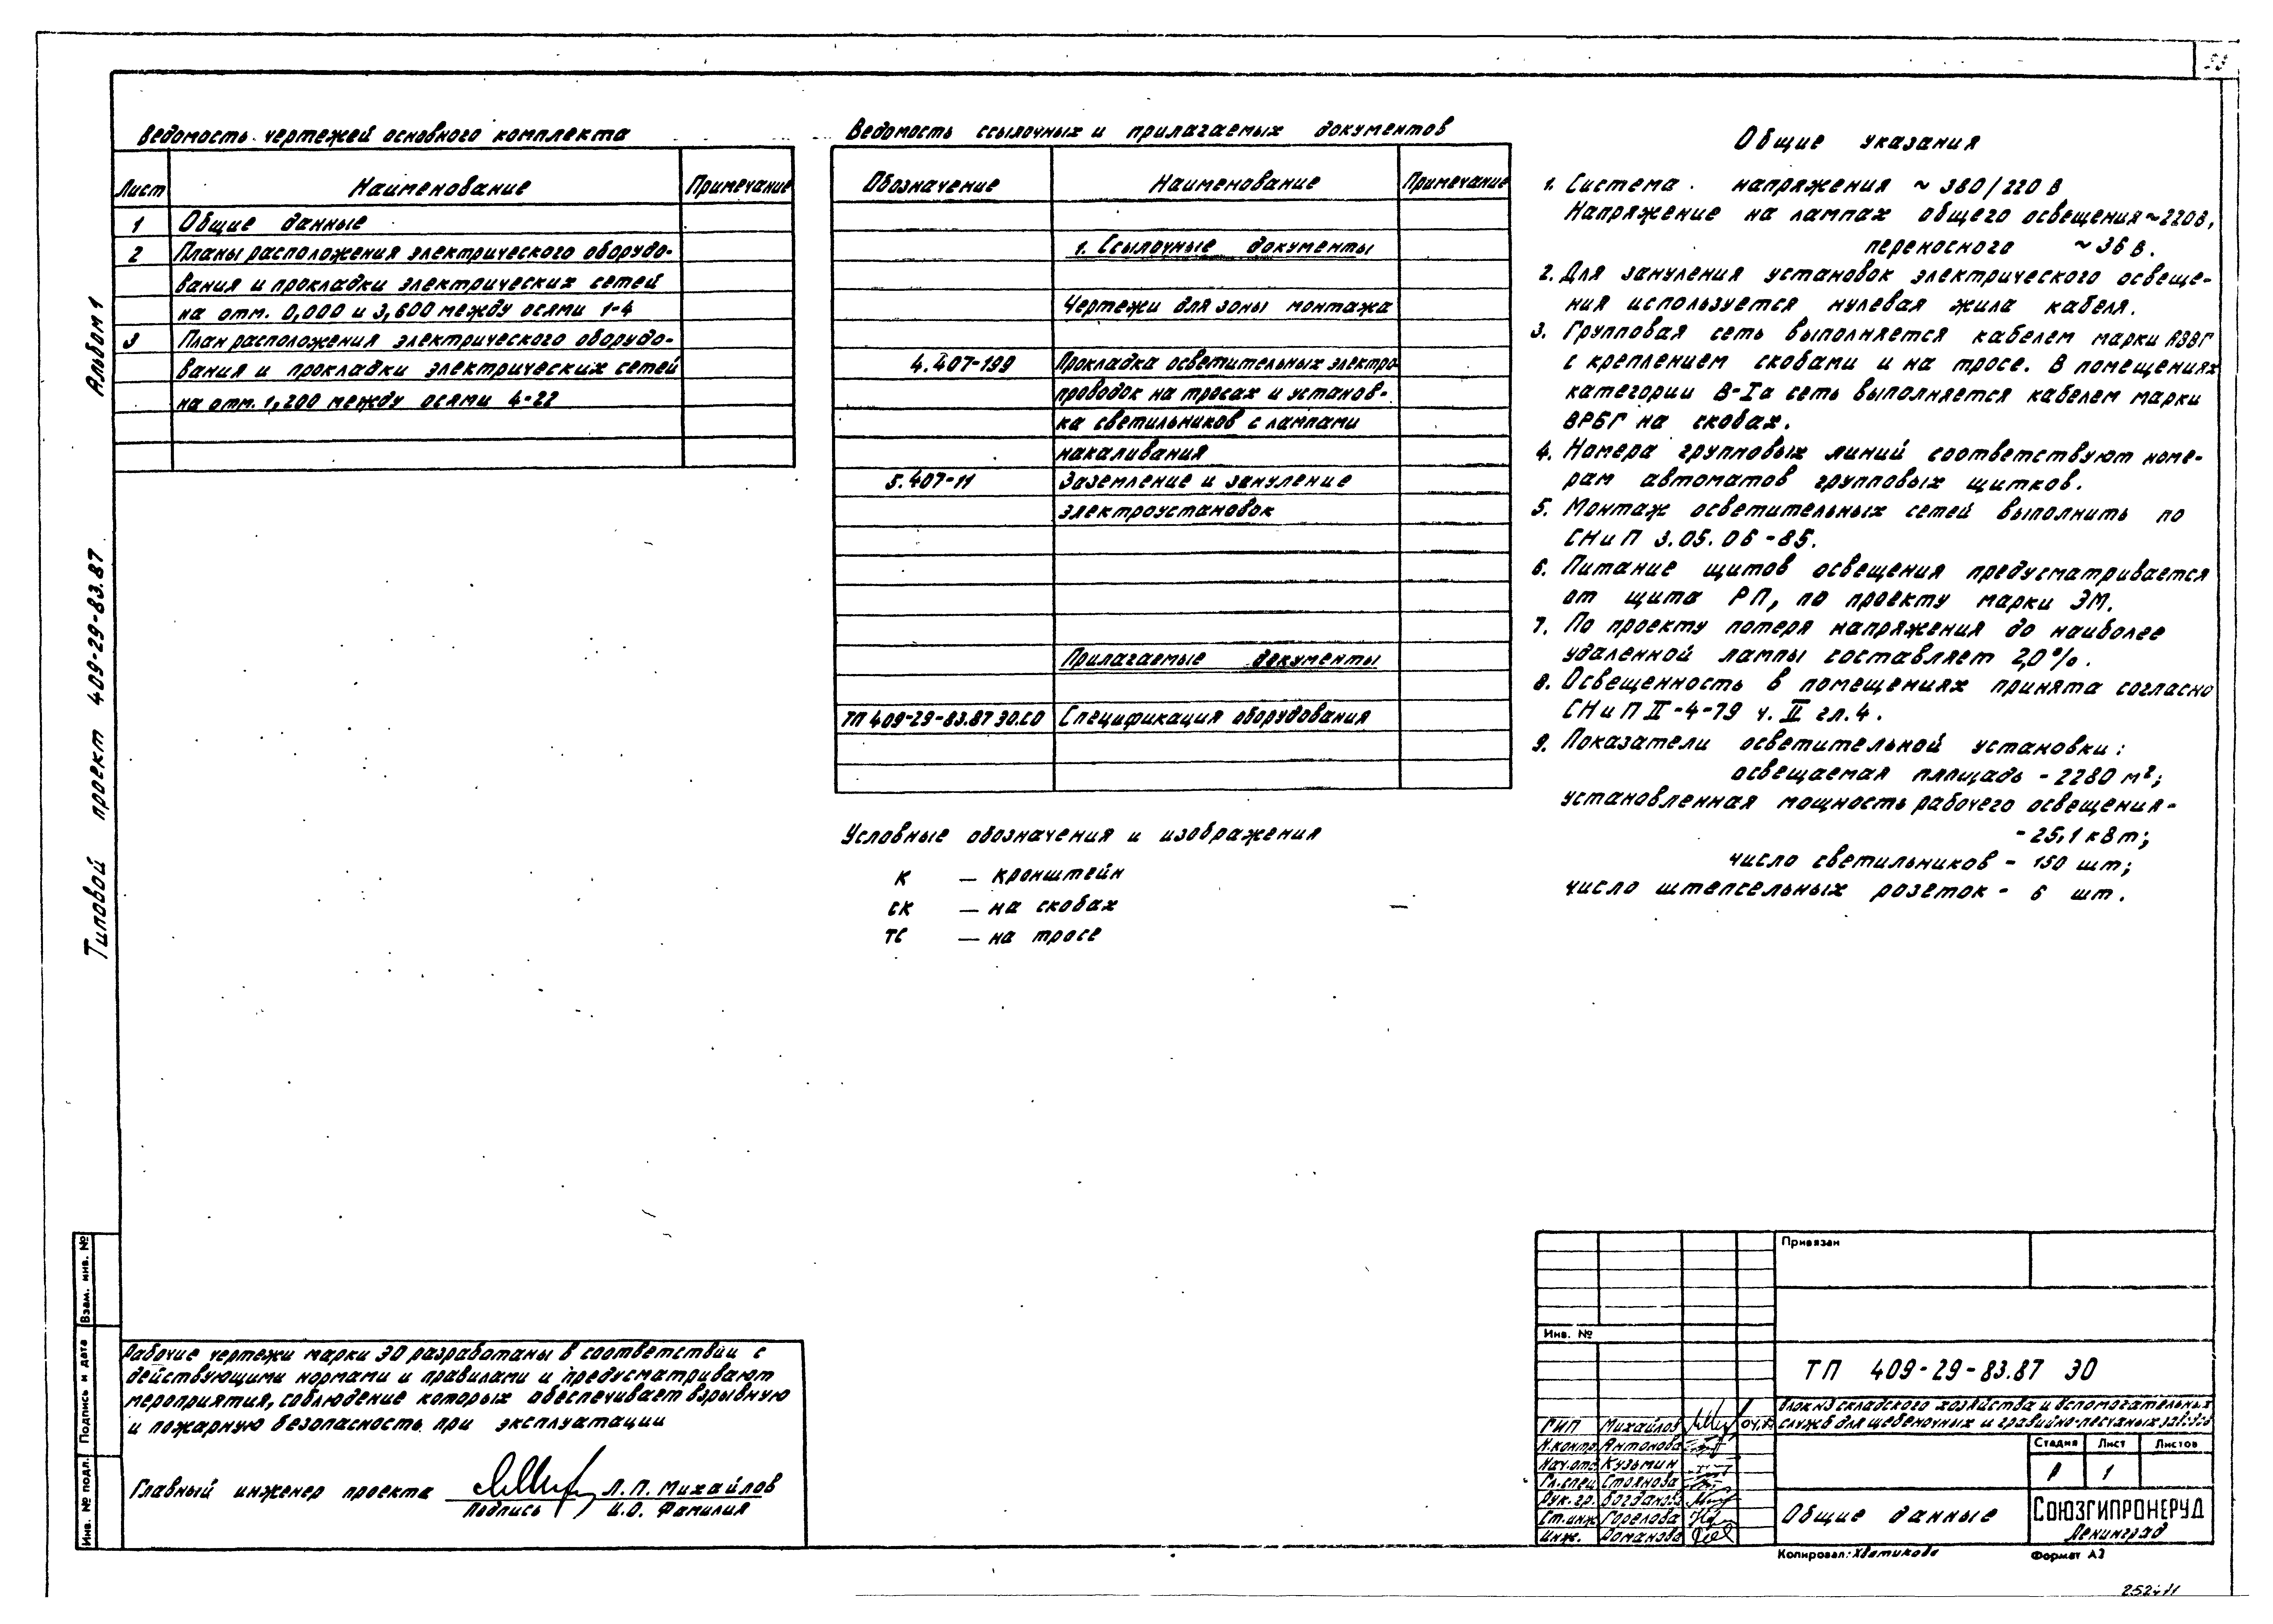 Ведомость чертежей основного комплекта
Лист Наименование Примечание
1 Общие данные
2 Планы расположения электрического оборудо-
вания и прокладки электрических сетей
на отм. 0,000 и 3,600 между осями 1-4
3 План расположения электрического оборудо-
вания и прокладки электрических сетей
на отм. 1,200 между осями 4-22
Ведомость ссылочных и прилагаемых документов
Обозначение Наименование Примечание
1. Ссылочные документы
Чертежи для зоны монтажа
4.407-199 Прокладка осветительных электро
проводок на тросах и установ-
ка светильников с лампами
накаливания
5.407-11 Заземление и зануление
электроустановок
Прилагаемые документы
ТП 409-29-83.87 ЭО.СО Спецификация оборудования
Условные обозначения и изображения
К — кронштейн
СК — на скобах
ТС — на тросе
Общие указания
1. Система напряжения ~ 380/220 В
Напряжение на лампах общего освещения ~220В,
переносного ~ 36 В.
2. Для зануления установок электрического освеще-
ния используется нулевая жила кабеля.
3. Групповая сеть выполняется кабелем марки АВВГ
с креплением скобами и на тросе. В помещениях
категории В-Iа сеть выполняется кабелем марки
ВРБГ на скобах.
4. Номера групповых линий соответствуют номе-
рам автоматов групповых щитков.
5. Монтаж осветительных сетей выполнить по
СНиП 3.05.06-85.
6. Питание щитов освещения предусматривается
от щита РП, по проекту марки ЭМ.
7. По проекту потеря напряжения до наиболее
удаленной лампы составляет 2,0%.
8. Освещенность в помещениях принята согласно
СНиП II-4-79 ч. II гл. 4.
9. Показатели осветительной установки:
освещаемая площадь - 2280 м²;
установленная мощность рабочего освещения-
- 25,1 кВт;
число светильников - 150 шт;
число штепсельных розеток - 6 шт.
Альбом 1
Типовой проект 409-29-83.87
Взам. инв. №
Подпись и дата
Инв. № подл.
Рабочие чертежи марки ЭО разработаны в соответствии с
действующими нормами и правилами и предусматривают
мероприятия, соблюдение которых обеспечивает взрывную
и пожарную безопасность при эксплуатации
Главный инженер проекта Л.П. Михайлов
Подпись И.О. Фамилия
Привязан
Инв. №
ТП 409-29-83.87 ЭО
Блок №3 складского хозяйства и вспомогательных
служб для щебеночных и гравийно-песчаных заводов
ГИП Михайлов
Н.контр. Антонова
Нач.отд. Кузьмин
Гл.спец Стоянова
Рук.гр. Богданова
Ст.инж Горелова
Инж. Романова
Стадия Лист Листов
Р 1
Общие данные
СОЮЗГИПРОНЕРУД
Ленинград
Копировал: Хватикова
Формат А3